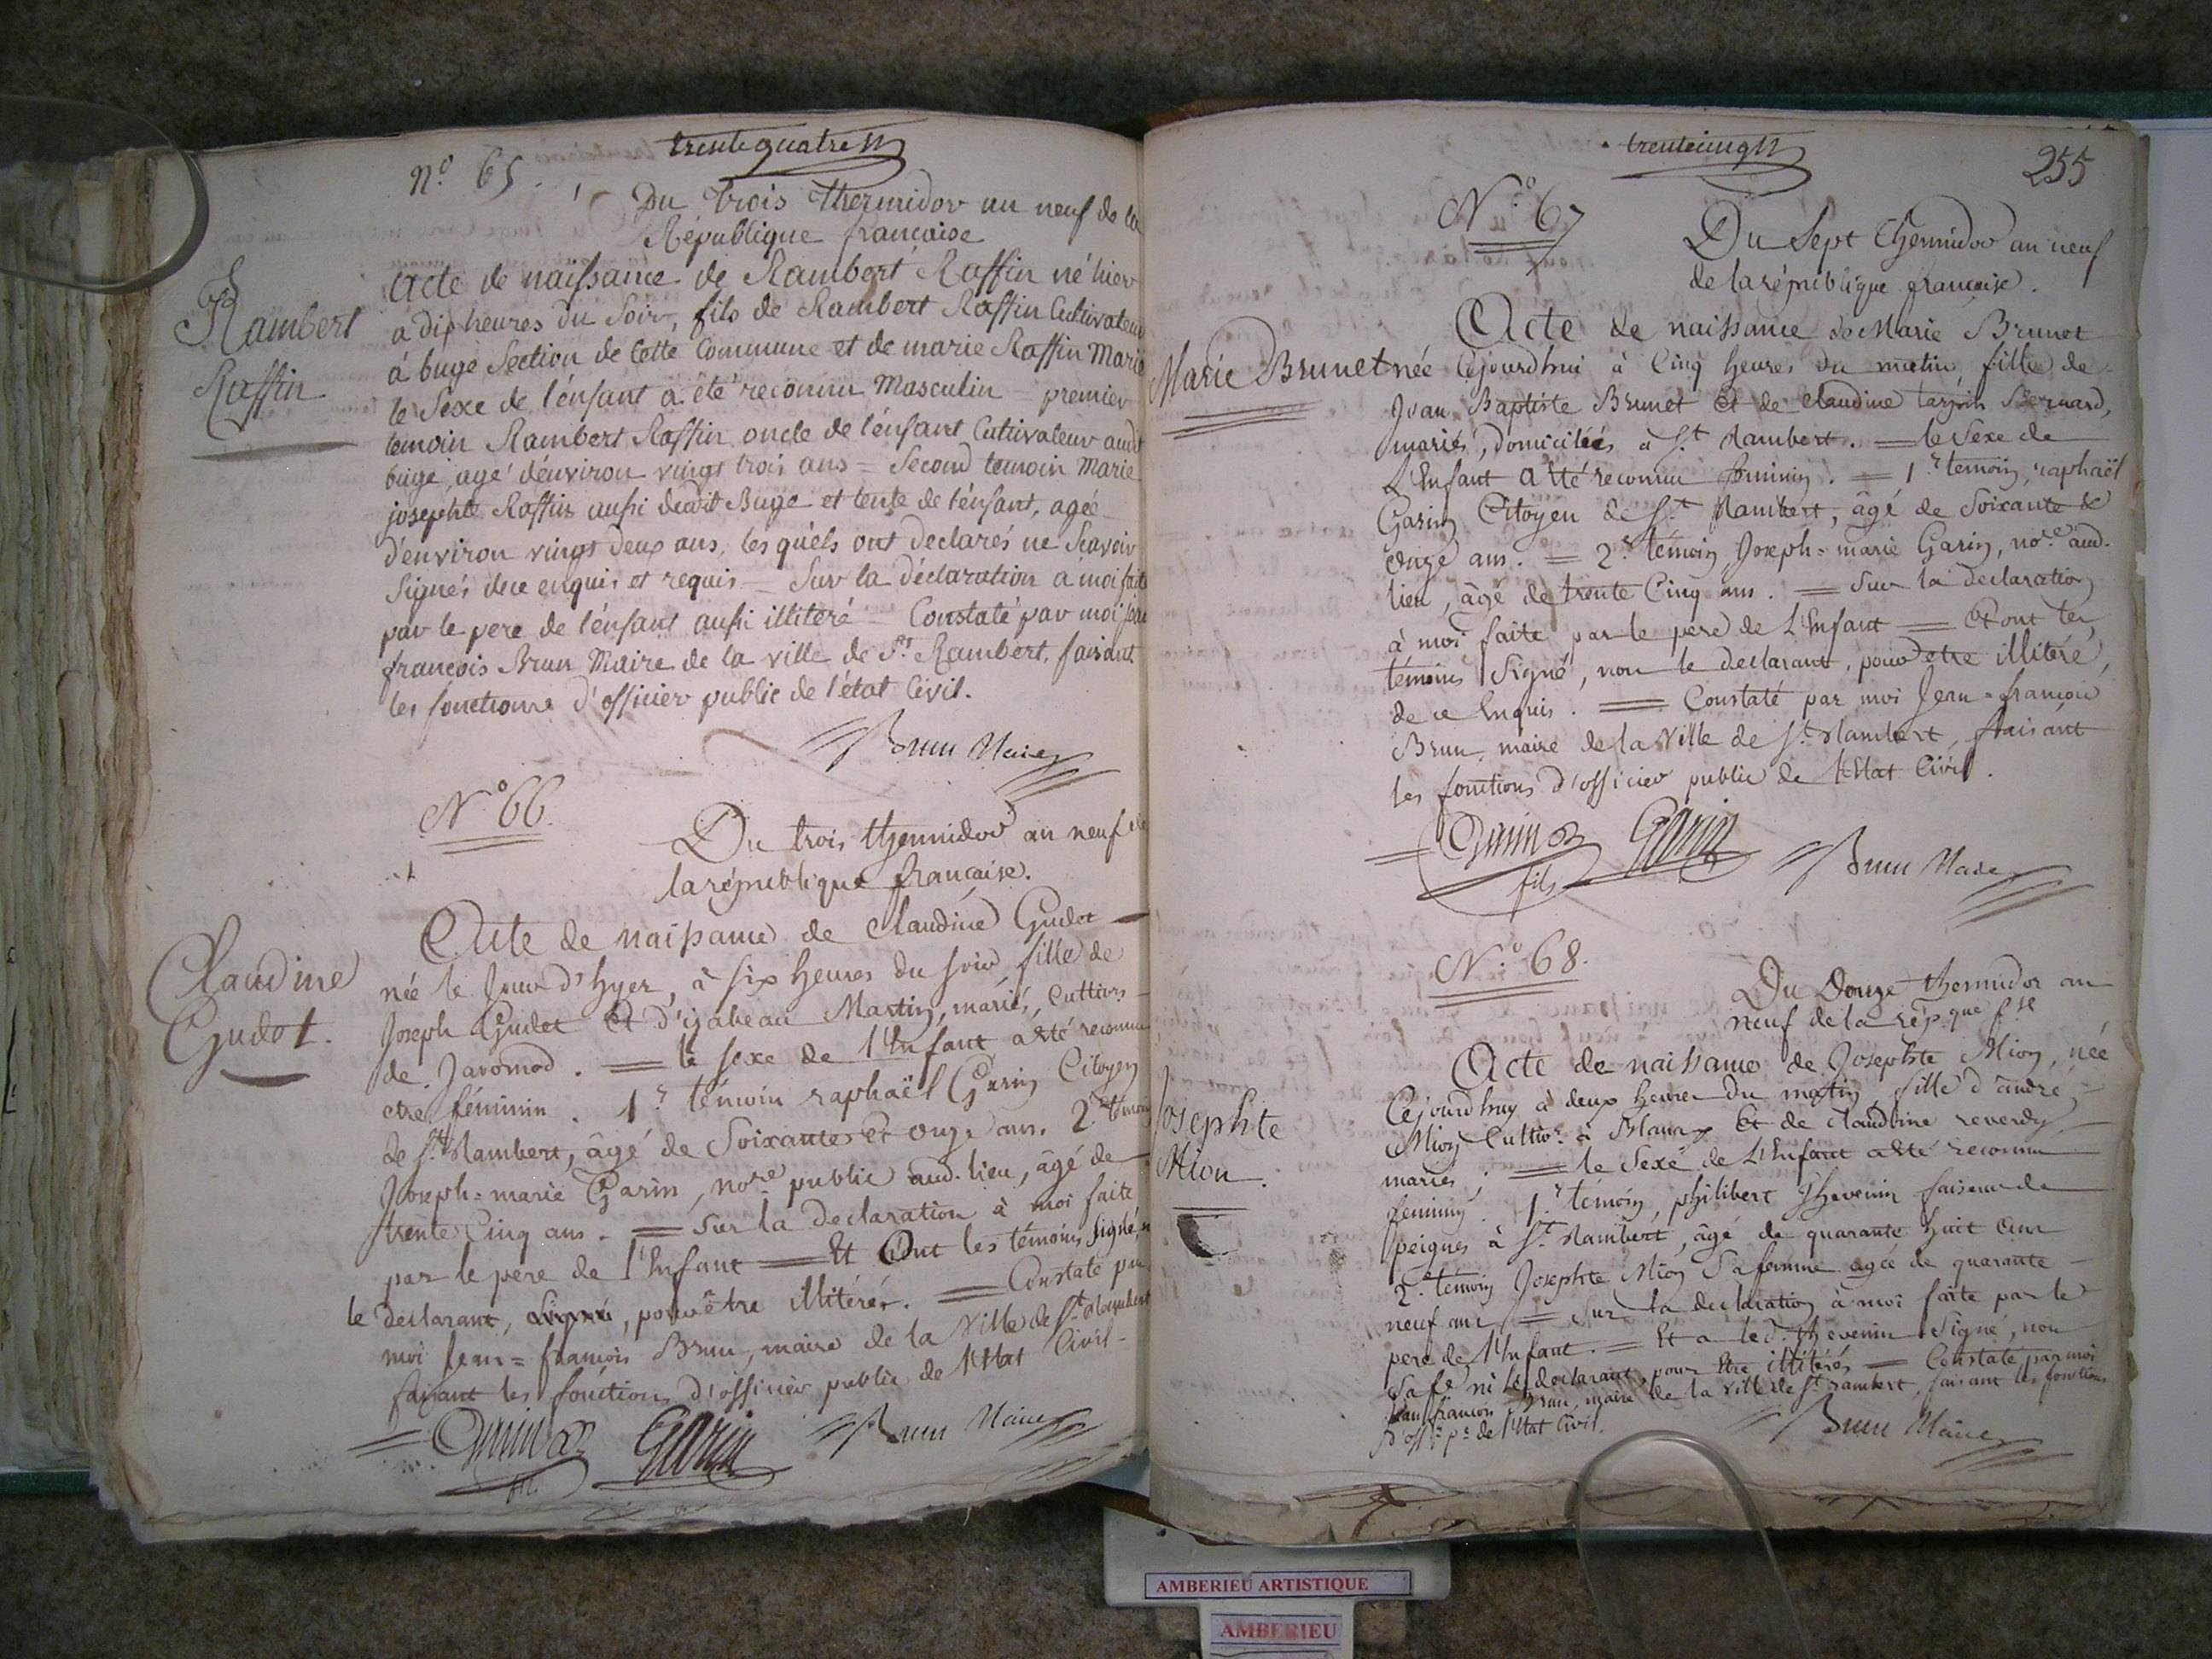 trente quatre
nº 65.
Du trois thermidor an neuf de la
République francaise
Rambert
Raffin
acte de naissance de Rambert Raffin né hier
a dix heures du Soir, fils de Rambert Raffin Cultivateur
á buge Section de Cette Commune et de marie Raffin Marie
le Sexe de l'enfant a été reconnu Masculin - premier
temoin Rambert Raffin oncle de l'énfant Cultivateur audt
buge, agé d'énviron vingt trois ans = Second temoin Marie
josephte Raffin aussi dudit Buge et tente de l'énfant, agée
d'environ vingt deux ans, lesquéls ont declarés ne Scavoir
Signér dece enquis et requis - Sur la déclaration a moi faite
par le pere de l'énfant aussi illitéré - Constaté par moi jean
françois Brun Maire de la ville de St Rambert, faisant
les fonctions d'officier public de l'état Civil.
Brun Maire
Nº 66.
Du trois thermidor an neuf de
la république francaise.
Claudine
Gudot.
Acte de naissance de Claudine Gudot
née le Jour d'hyer, à six heures du soir, fille de
Joseph Gudot Et d'izabeau Martin, mariés, Cultivrs
de Javornod. = le sexe de l'Enfant a été reconnu
etre féminin. 1r témoin raphaël Garin Citoyen
de St Rambert, âgé de Soixante Et onze ans. 2e témoin
Joseph=marie Garin, nore public aud. lieu, âgé de
trente Cinq ans. = Sur la declaration à moi faite
par le pere de l'Enfant = Et Ont les témoins signé,
le declarant, pour être illitérér. = Constaté par
moi Jean=francois Brun, maire de la Ville de St Rambert
faisant les fonctions d'officier public de l'Etat Civil.
Garin
fils
Garin
Brun Maire
trentecinq
255
Nº 67
Du Sept thermidor an neuf
de la république francaise.
Marie Brunet
Acte de naissance de Marie Brunet
née Cejourdhui à Cinq heures du matin, fille de
Jean Baptiste Brunet Et de Claudine Bernard,
mariés, domiciliés à St Rambert. = le Sexe de
L'Enfant a été reconnu féminin. = 1r témoin, raphaël
Garin Citoyen de St Rambert, âgé de Soixante &
Onze ans. = 2r témoin Joseph=marie Garin, nore aud.
lieu, âgé de trente Cinq ans. = Sur la declaration
à moi faite par le pere de L'Enfant = Et ont les
témoins Signé, non le declarant, pour etre illitéré,
de ce Enquis. = Constaté par moi Jean=francois
Brun, maire de la Ville de St Rambert, faisant
les fonctions d'officier public de l'Etat Civil.
Garin
fils
Garin
Brun Maire
Nº 68.
Du Douze thermidor an
neuf de la rép.que fse
Josephte
Mion.
Acte de naissance de Josephte Mion, née
Cejourdhuy à deux heures du matin, fille d'andré
Mion Cultivr. à Blanaz Et de Claudine reverdy
mariés; = le Sexe de L'Enfant a été reconnu
féminin. 1r témoin, philibert Thevenin faiseur de
peignes à St Rambert, âgé de quarante huit ans
2e témoin Josephte Mion Sa femme agée de quarante
neuf ans = Sur la declaration à moi faite par le
pere de l'Enfant. = Et a led. thevenin Signé, non
Sa fe ni le declarant, pour Etre illitérés = Constaté par moi
Jean francois Brun, maire de la Ville de St rambert, faisant les fonctions
d'offr. pc de l'Etat Civil.
Brun Maire
AMBERIEU ARTISTIQUE
AMBERIEU